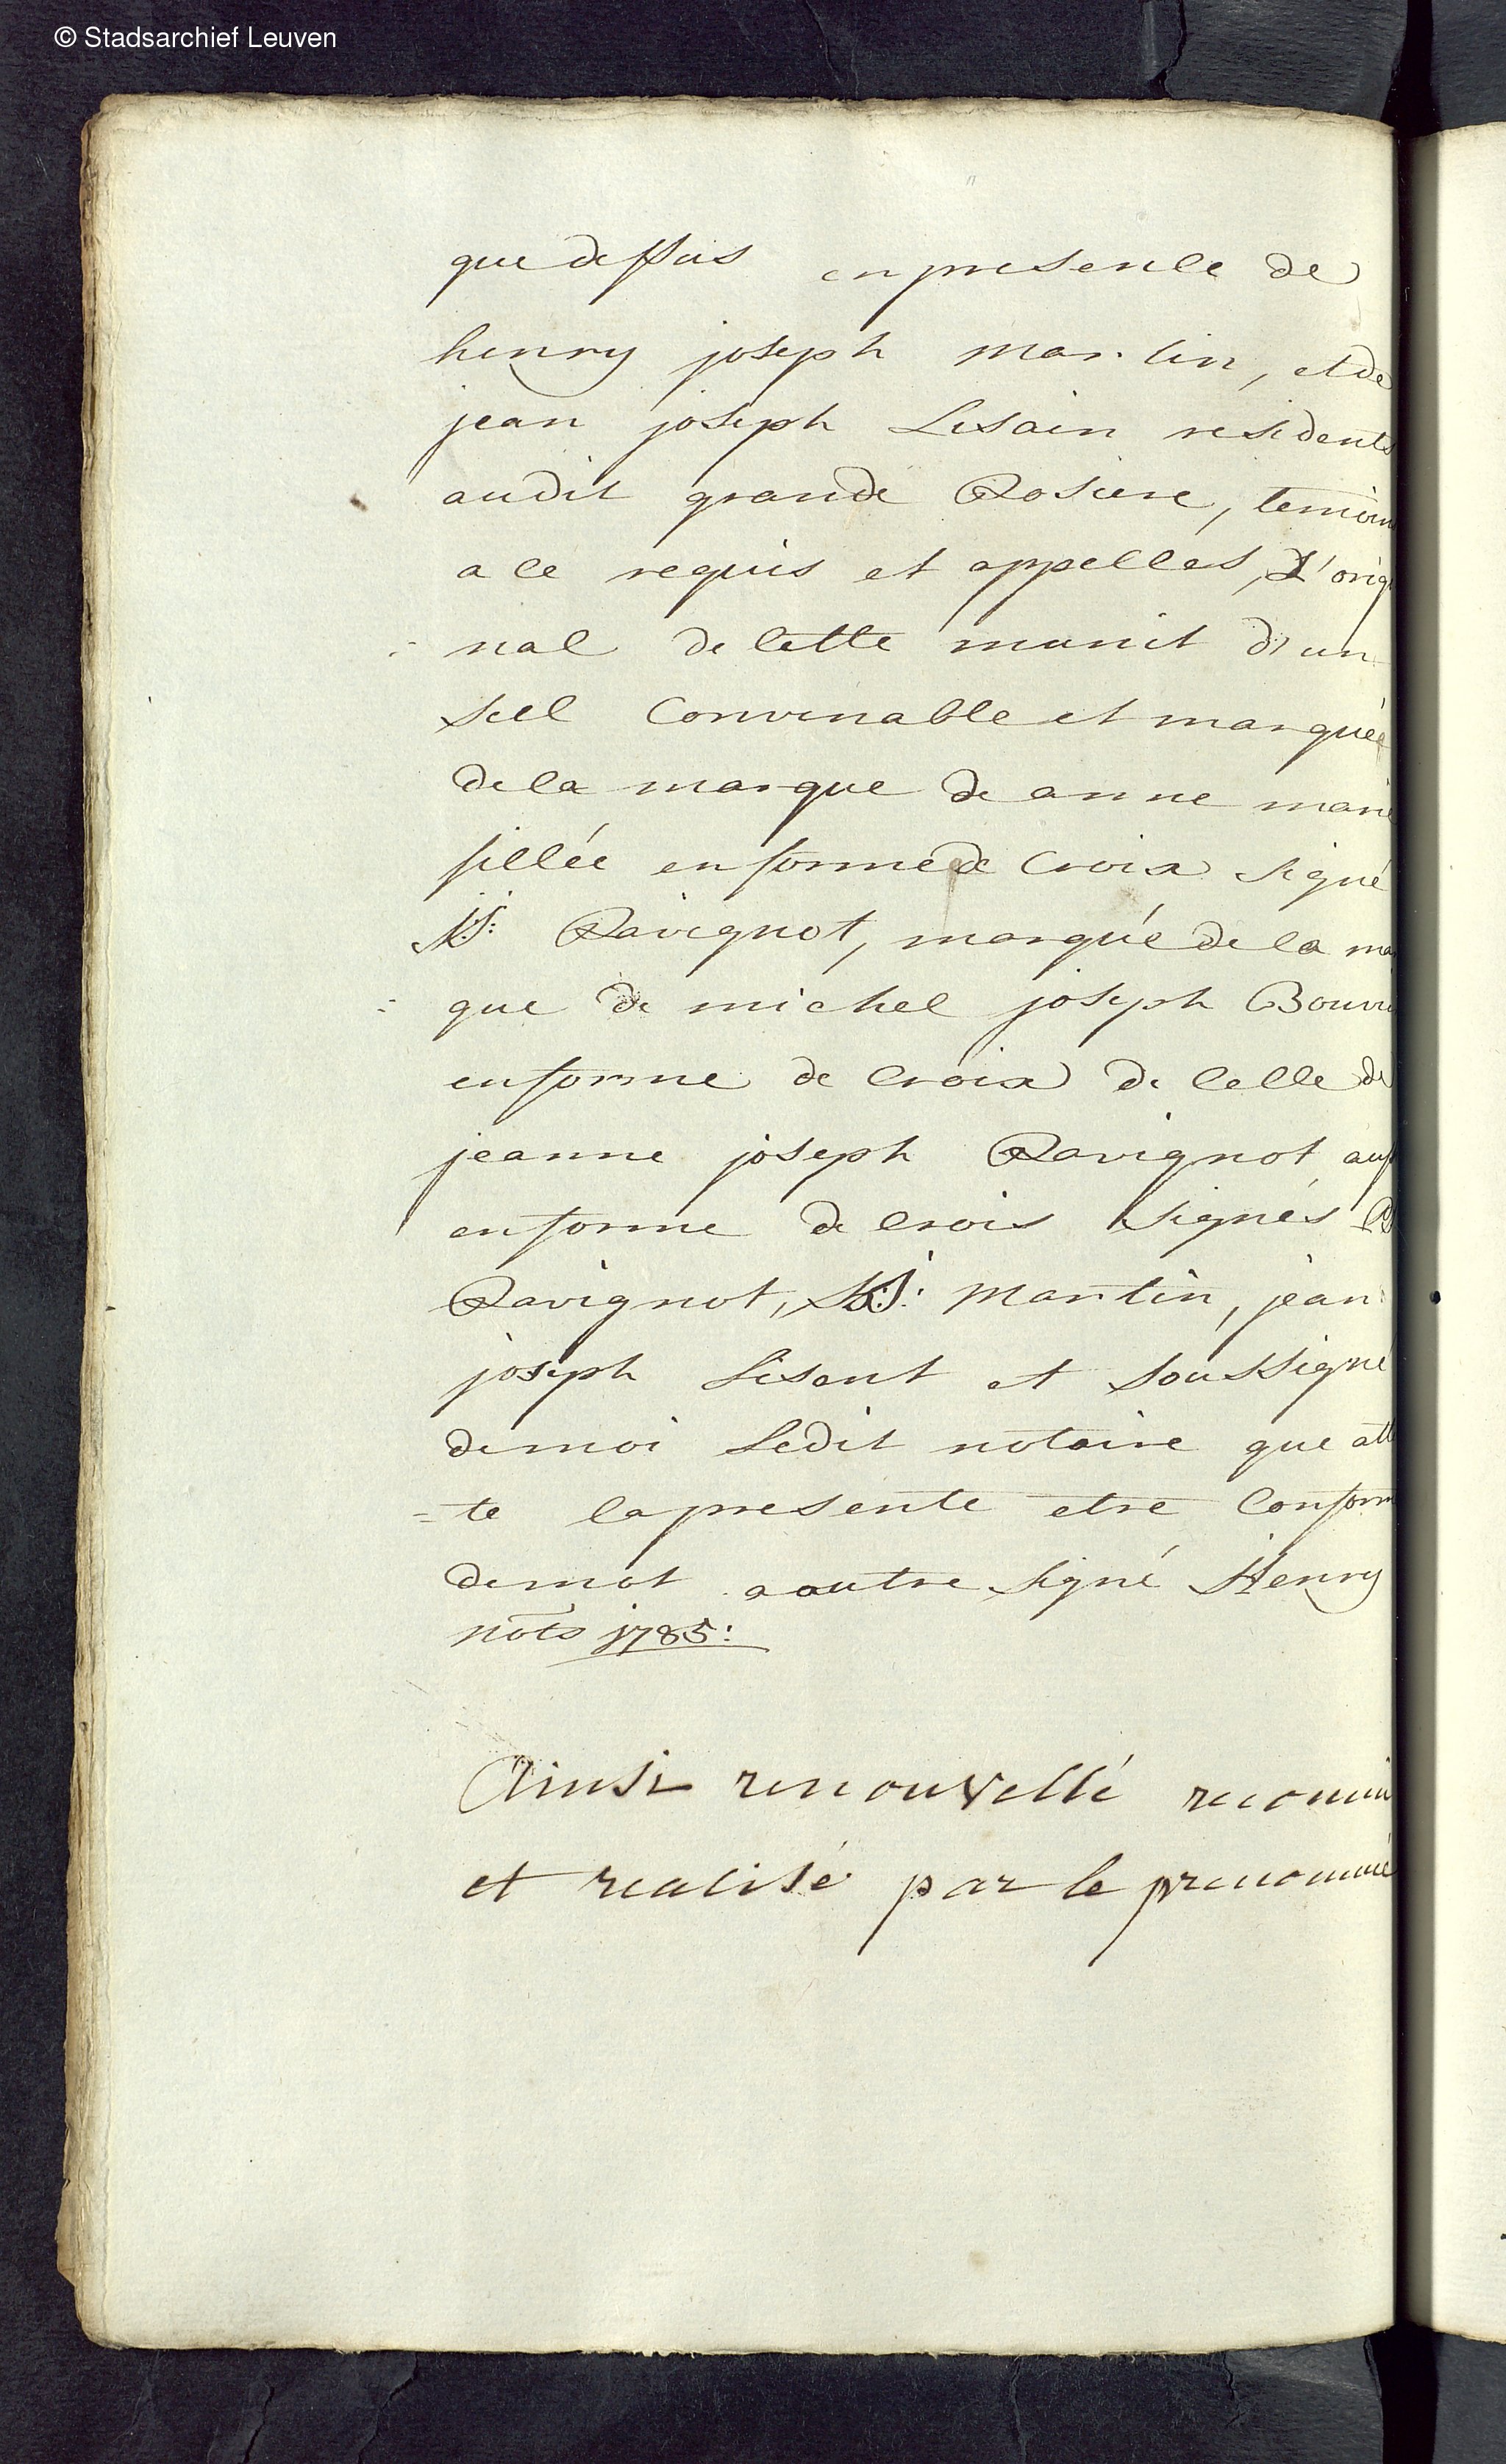 © Stadsarchief Leuven
que dessus en presence de
henry joseph martin, et de
jean joseph Lesain residents
audit grande Rosiere, temoin
a ce requis et appelles, L'origi
nal de cette munit d'un
seel Convenable et marquée
de la marque de anne marie
fillée en forme de Croix signé
Ravignot, marqué de la mar
= que de michel joseph Bouvi
en forme de Croix de celle de
jeanne joseph Ravignot aus
en forme de crois signés
Ravignot, martin, jean
joseph Lesent et soussigné
de moi Ledit notaire que att
= te la presente etre Conform
de mot a autre signé Henry
nots 1785:
Ainsi renouvellé reconnu
et realisé par le prenommé